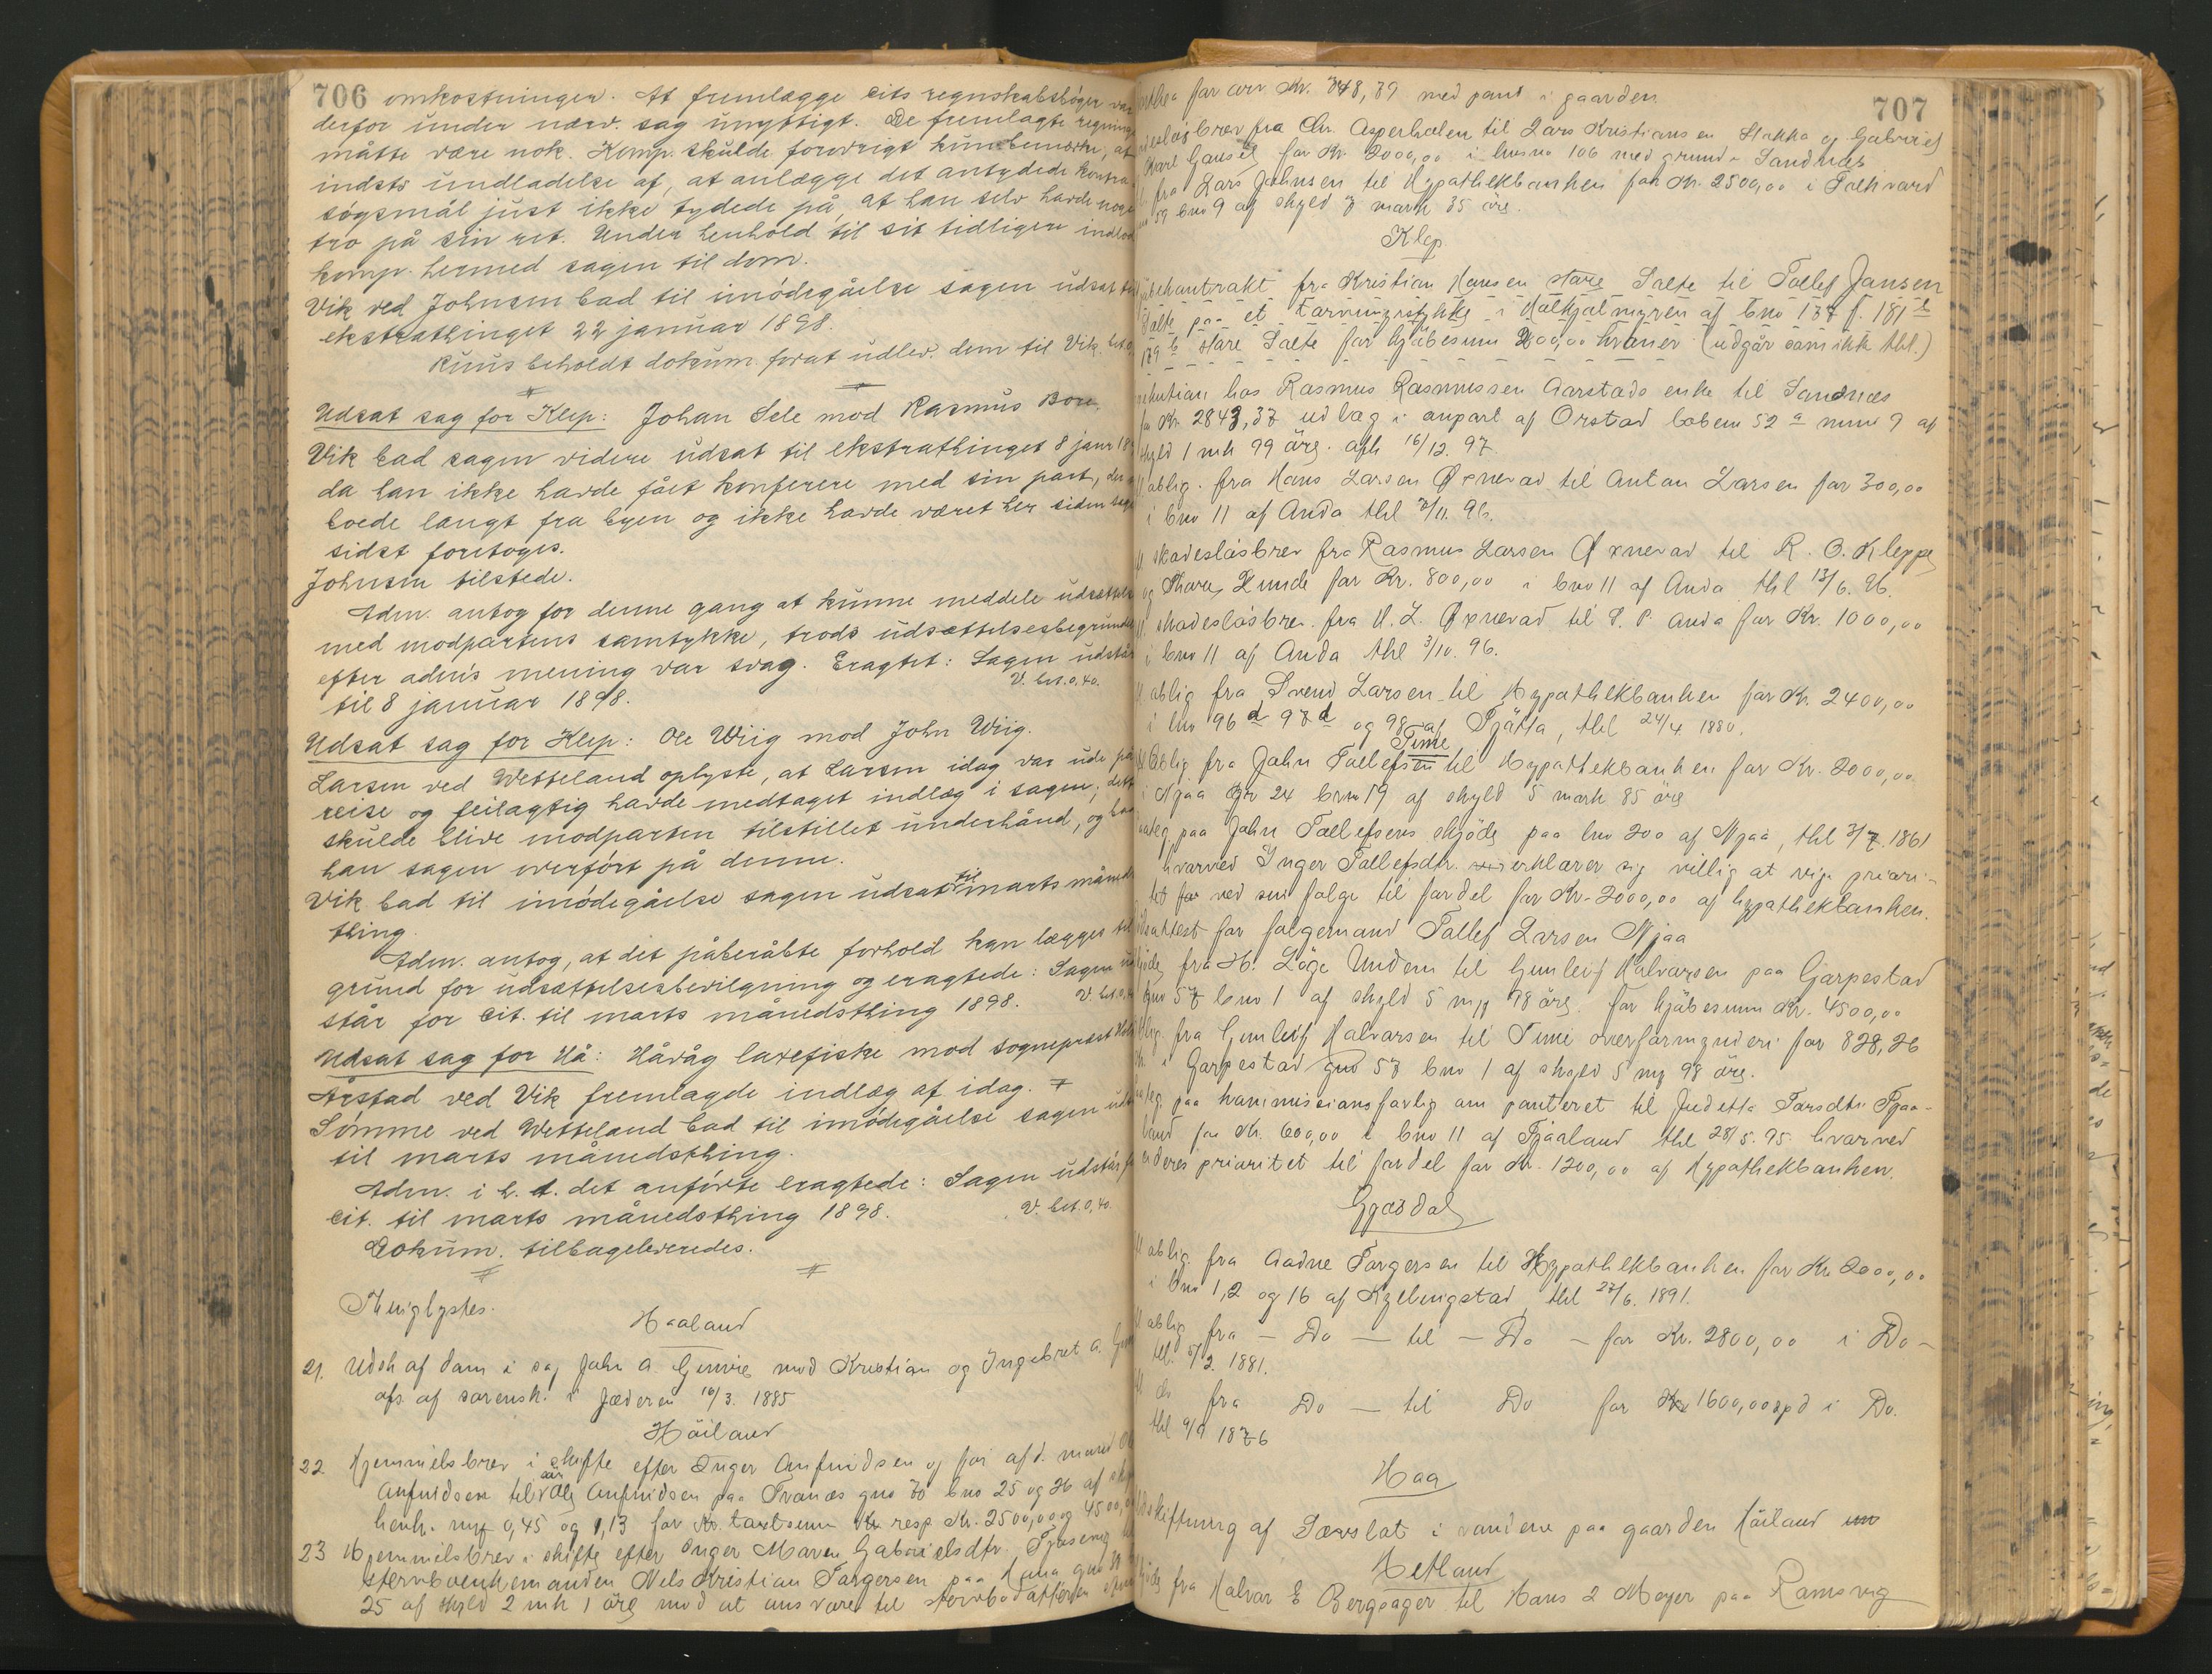 706 omkostninger. At fremlægge cits regnskabsbøger var
derfor under nærv. sag unyttigt. De fremlagte regning
måtte være nok. Komp. skulde forøvrigt kun bemærke, at
indsts undladelse af, at anlægge det antydede kontra
søgsmål just ikke tydede på, at han selv havde noge
tro på sin ret. Under henhold til sit tidligere indlod
komp. hermed sagen til dom.
Vik ved Johnsen bad til imødegåelse sagen udsat til
ekstrathinget 22 januar 1898.
Kuus beholdt dokum. forat udlev. dem til Vik.
Udsat sag for Klep: Johan Sele mod Rasmus Bore.
Vik bad sagen videre udsat til ekstrathinget 8 janr 18
da han ikke havde fået konferere med sin part, der
boede langt fra byen og ikke havde været her siden sagen
sidst foretoges.
Johnsen tilstede.
Adm. antog for denne gang at kunne meddele udsættelse
med modpartens samtykke, trods udsættelsesbegrundel
efter adm's mening var svag. Eragtet: Sagen udstår
til 8 januar 1898. V. bet. 0,40.
Udsat sag for Klep: Ole Wiig mod John Wiig.
Larsen ved Wetteland oplyste, at Larsen idag var ude på
reise og feilagtig havde medtaget indlæg i sagen; dett
skulde blive modparten tilstillet underhånd, og bad
han sagen overført på denne.
Vik bad til imødegåelse sagen udsat til marts måneds
thing.
Adm. antog, at det påberåbte forhold kan lægges til
grund for udsættelsesbevilgning og eragtede: Sagen ud
står for cit. til marts månedsthing 1898. V. bet. 0,40
Udsat sag for Hå: Håvåg laxefiske mod sogneprest
Årstad ved Vik fremlagde indlæg af idag.
Sömme ved Wetteland bad til imødegåelse sagen uds
til marts månedsthing.
Adm. i h. t. det anførte eragtede: Sagen udstår for
cit. til marts månedsthing 1898. V. bet. 0,40.
Dokum. tilbageleveredes.
Thinglystes.
Haaland
21. Udsk af dom i sag John A. Gimre mod Kristian og Ingebret A.
afs. af sorensk. i Jæderen 16/3. 1885
Höiland
22. Hjemmelsbrev i skifte efter Inger Anfindsen og før afd. mand
Anfindsen til sön Olej Anfindsen paa Tranæs gno 70 bno 25 og 26 af
henh. mrk 0,45 og 1,13 for Kr. taxtsum resp Kr. 2500,00 og 4500,
23 Hjemmelsbrev i skifte efter Inger Maren Gabrielsdtr. Tjosevig
stervboenkemanden Nels Kristian Torgersen paa Hana gno
25 af skyld 2 mk 1 öre mod at ansvare til stervbo
707
for arv Kr. 348,39 med pant i gaarden
fra Chr. Asperholen til Lars Kristiansen Stokka og Gabriel
Karl Gausel for Kr. 2000,00 i husno 106 med grund. Sandnæs
fra Lars Johnsen til Hypothekbanken for Kr. 2500,00 i Folkvord
59 bno 9 af skyld 7 mark 35 öre.
Klep
fra Kristian Hansen store Salte til Tollef Jansen
Salte paa et Tormyrstykke i Kalhjalmyren af bno 137 f. 181 b
179 b store Salte for kjöbesum 200,00 kroner (udgår som ikke thl.)
hos Rasmus Rasmussen Aarstads enke til Sandnæs
for Kr. 2843,37 udlæg i anpart af Orstad löbenr 52 a nmr 9 af
skyld 1 mk 99 öre. afh 16/12. 97
oblig. fra Hans Larsen Øxnevad til Anton Larsen for 300,00
i bno 11 af Anda thl 7/11. 96.
skadeslösbrev fra Rasmus Larsen Øxnevad til R. O. Kleppe
og Thore Lunde for Kr. 800,00 i bno 11 af Anda thl 13/6. 96.
skadeslösbrev fra H. L. Øxnevad til S. P. Anda for Kr. 1000,00
i bno 11 af Anda thl 3/10. 96.
oblig fra Svend Larsen til Hypothekbanken for Kr. 2400,00
i lno 96 d 97 d og 98 af Tjåtta, thl 24/4 1880.
Time
Oblig. fra John Tollefsen til hypothekbanken for Kr. 2000,00
i Njaa gr 24 brno 19 af skyld 5 mark 85 öre
paa John Tollefsens skjöde paa lno 200 af Njaa, thl 3/7. 1861
hvorved Inger Tollefsdtr. erklærer sig villig at vige priori-
tet for ved sin folge til fordel for Kr. 2000,00 af hypothekbanken.
for folgemand Tollef Larsen Njaa
fra H. Löge Undem til Gunleif Halvorsen paa Gjorpestad
gno 57 bno 1 af skyld 5 mrk 98 öre. for kjöbesum Kr. 4500,00
fra Gunleif Halvorsen til Time overformynderi for 828,26
i Gorpestad gno 57 bno 1 af skyld 5 mrk 98 öre.
paa kommissionsforlig om panteret til Judetta Torsdtr. Tjaa-
land for Kr. 600,00 i bno 11 af Tjaaland thl 28/5. 95. hvorved
prioritet til fordel for Kr. 1200,00 af Hypothekbanken.
Gjæsdal
oblig. fra Aadne Torgersen til Hypothekbanken for Kr. 2000,00
i bno 1, 2 og 16 af Kyllingstad thl 27/6. 1891.
oblig fra - Do - til - Do - for Kr. 2800,00 i Do -
thl. 5/2. 1881.
do fra Do - til Do for 1600,00 spd i Do.
thl 9/9 1876
Haa
Udskiftning af Særslåt i vandene paa gaarden Höiland
Hetland
fra Halvor E Bergsager til Hans L Moyer paa Ramsvig